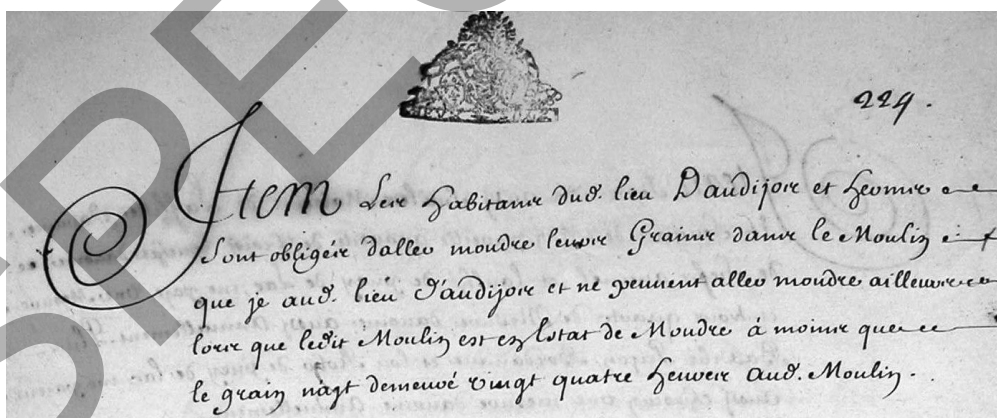 SPE
224.
Item Les habitans dud. lieu Daudijos et heomis
Sont obligés daller moudre leurs Grains dans le Moulin
que je aud. lieu d'audijos et ne peuuent aller moudre ailleurs
lors que ledit Moulin est en estat de Moudre a moins que
le grain nayt demeuré vingt quatre heures aud. Moulin.